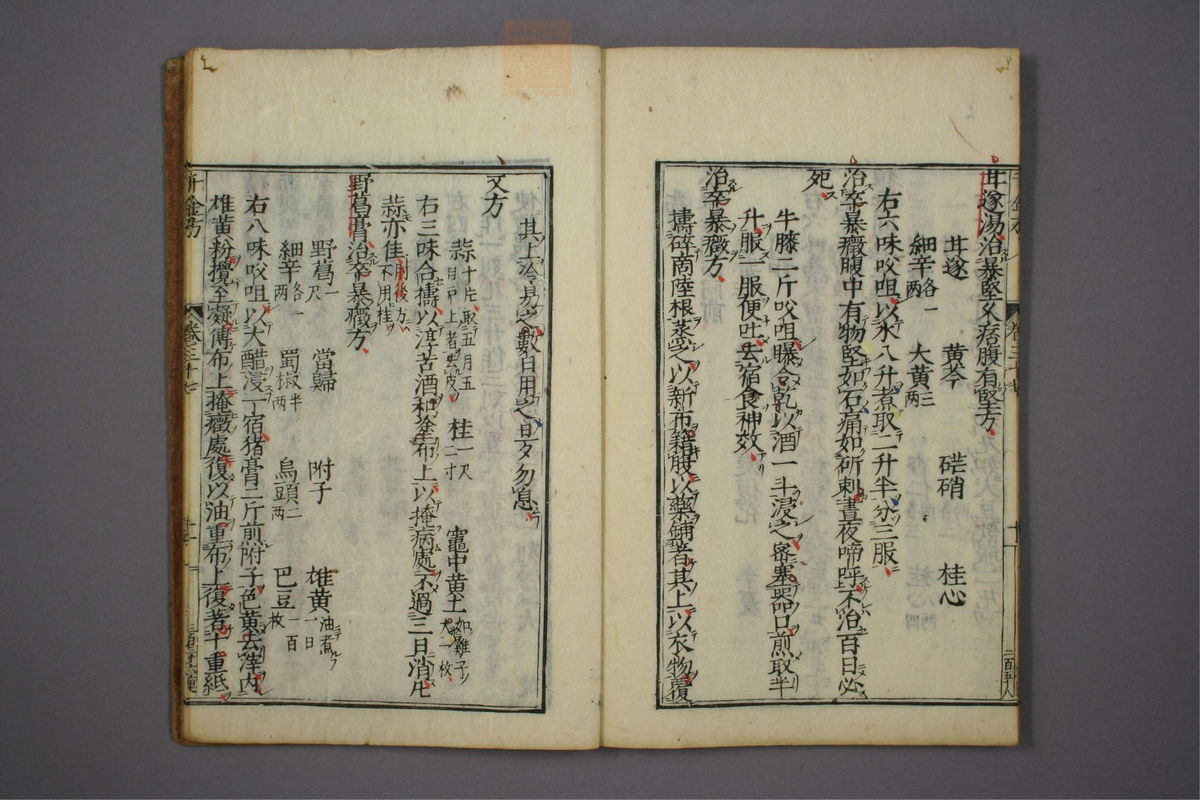 甘遂湯治暴堅久痞腹有堅方
甘遂 黃芩 硭硝 桂心
細辛各一兩 大黃三兩
右六味㕮咀以水八升煮取二升半分三服
治卒暴癥腹中有物堅如石痛如斫刺晝夜啼呼不治百日必
死
牛膝二斤㕮咀曝令乾以酒一斗浸之密塞器口煎取半
升服一服便吐去宿食神效
治卒暴癥方
擣碎商陸根蒸之以新布籍腹以藥鋪著其上以衣物覆
其上冷易之數日用之旦夕勿息
又方
蒜十片取五月五日戶上者去皮 桂一尺二寸 竈中黃土如雞子大一枚
右三味合擣以淳苦酒和塗布上以掩病處不過三日消凡
蒜亦佳肘後方不用桂
野葛膏治卒暴癥方
野葛一尺 當歸 附子 雄黃油煮一日
細辛各一兩 蜀椒半兩 烏頭二兩 巴豆一百枚
右八味㕮咀以大醋浸一宿猪膏二斤煎附子色黃去滓內
雄黃粉攪至凝傅布上掩癥處復以油重布上復著十重紙